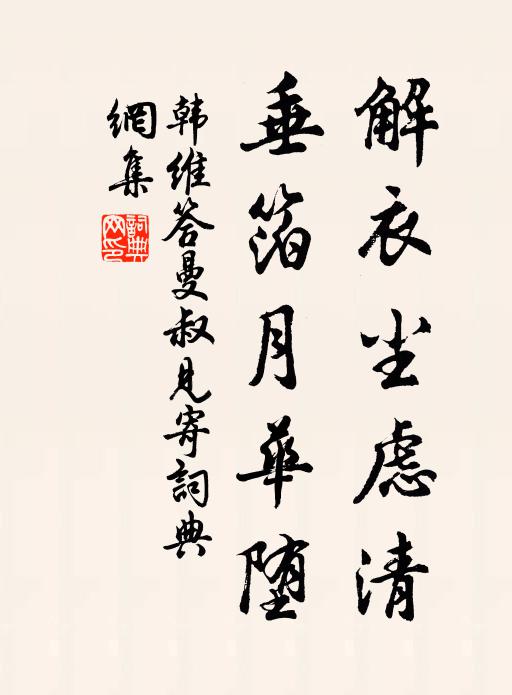 解衣尘虑清
垂箔月華堕
韩维答曼叔见寄詞典
網集
詞典
网印